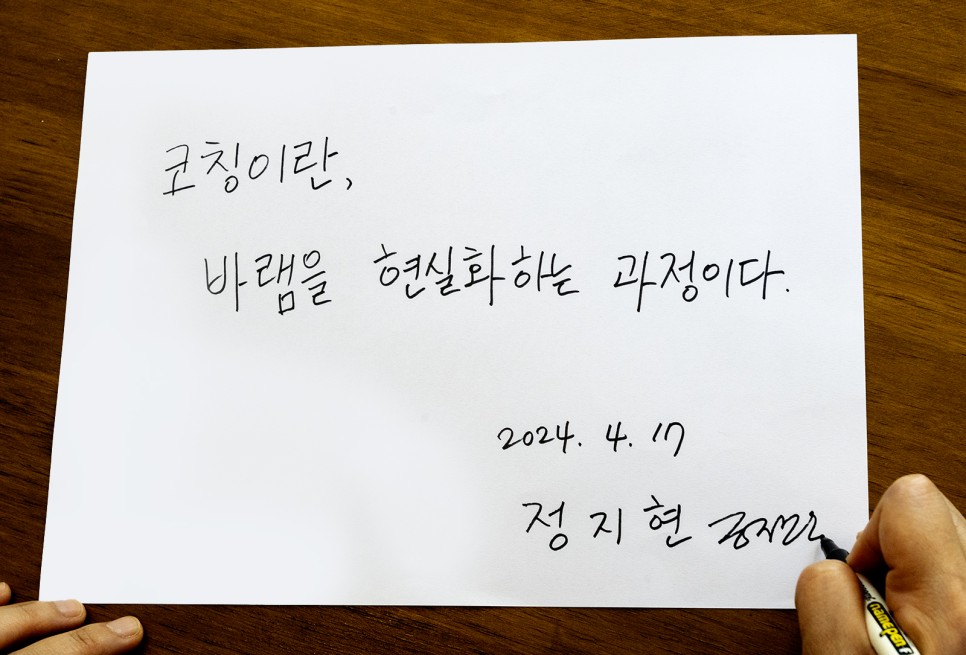 코칭이란,
바램을 현실화하는 과정이다.
2024. 4. 17
정지현
namepen F